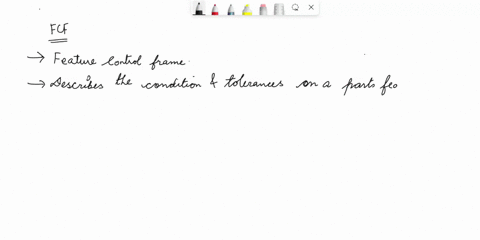 FCF
→ Feature Control frame.
→ Describes the condition & tolerances on a parts fea